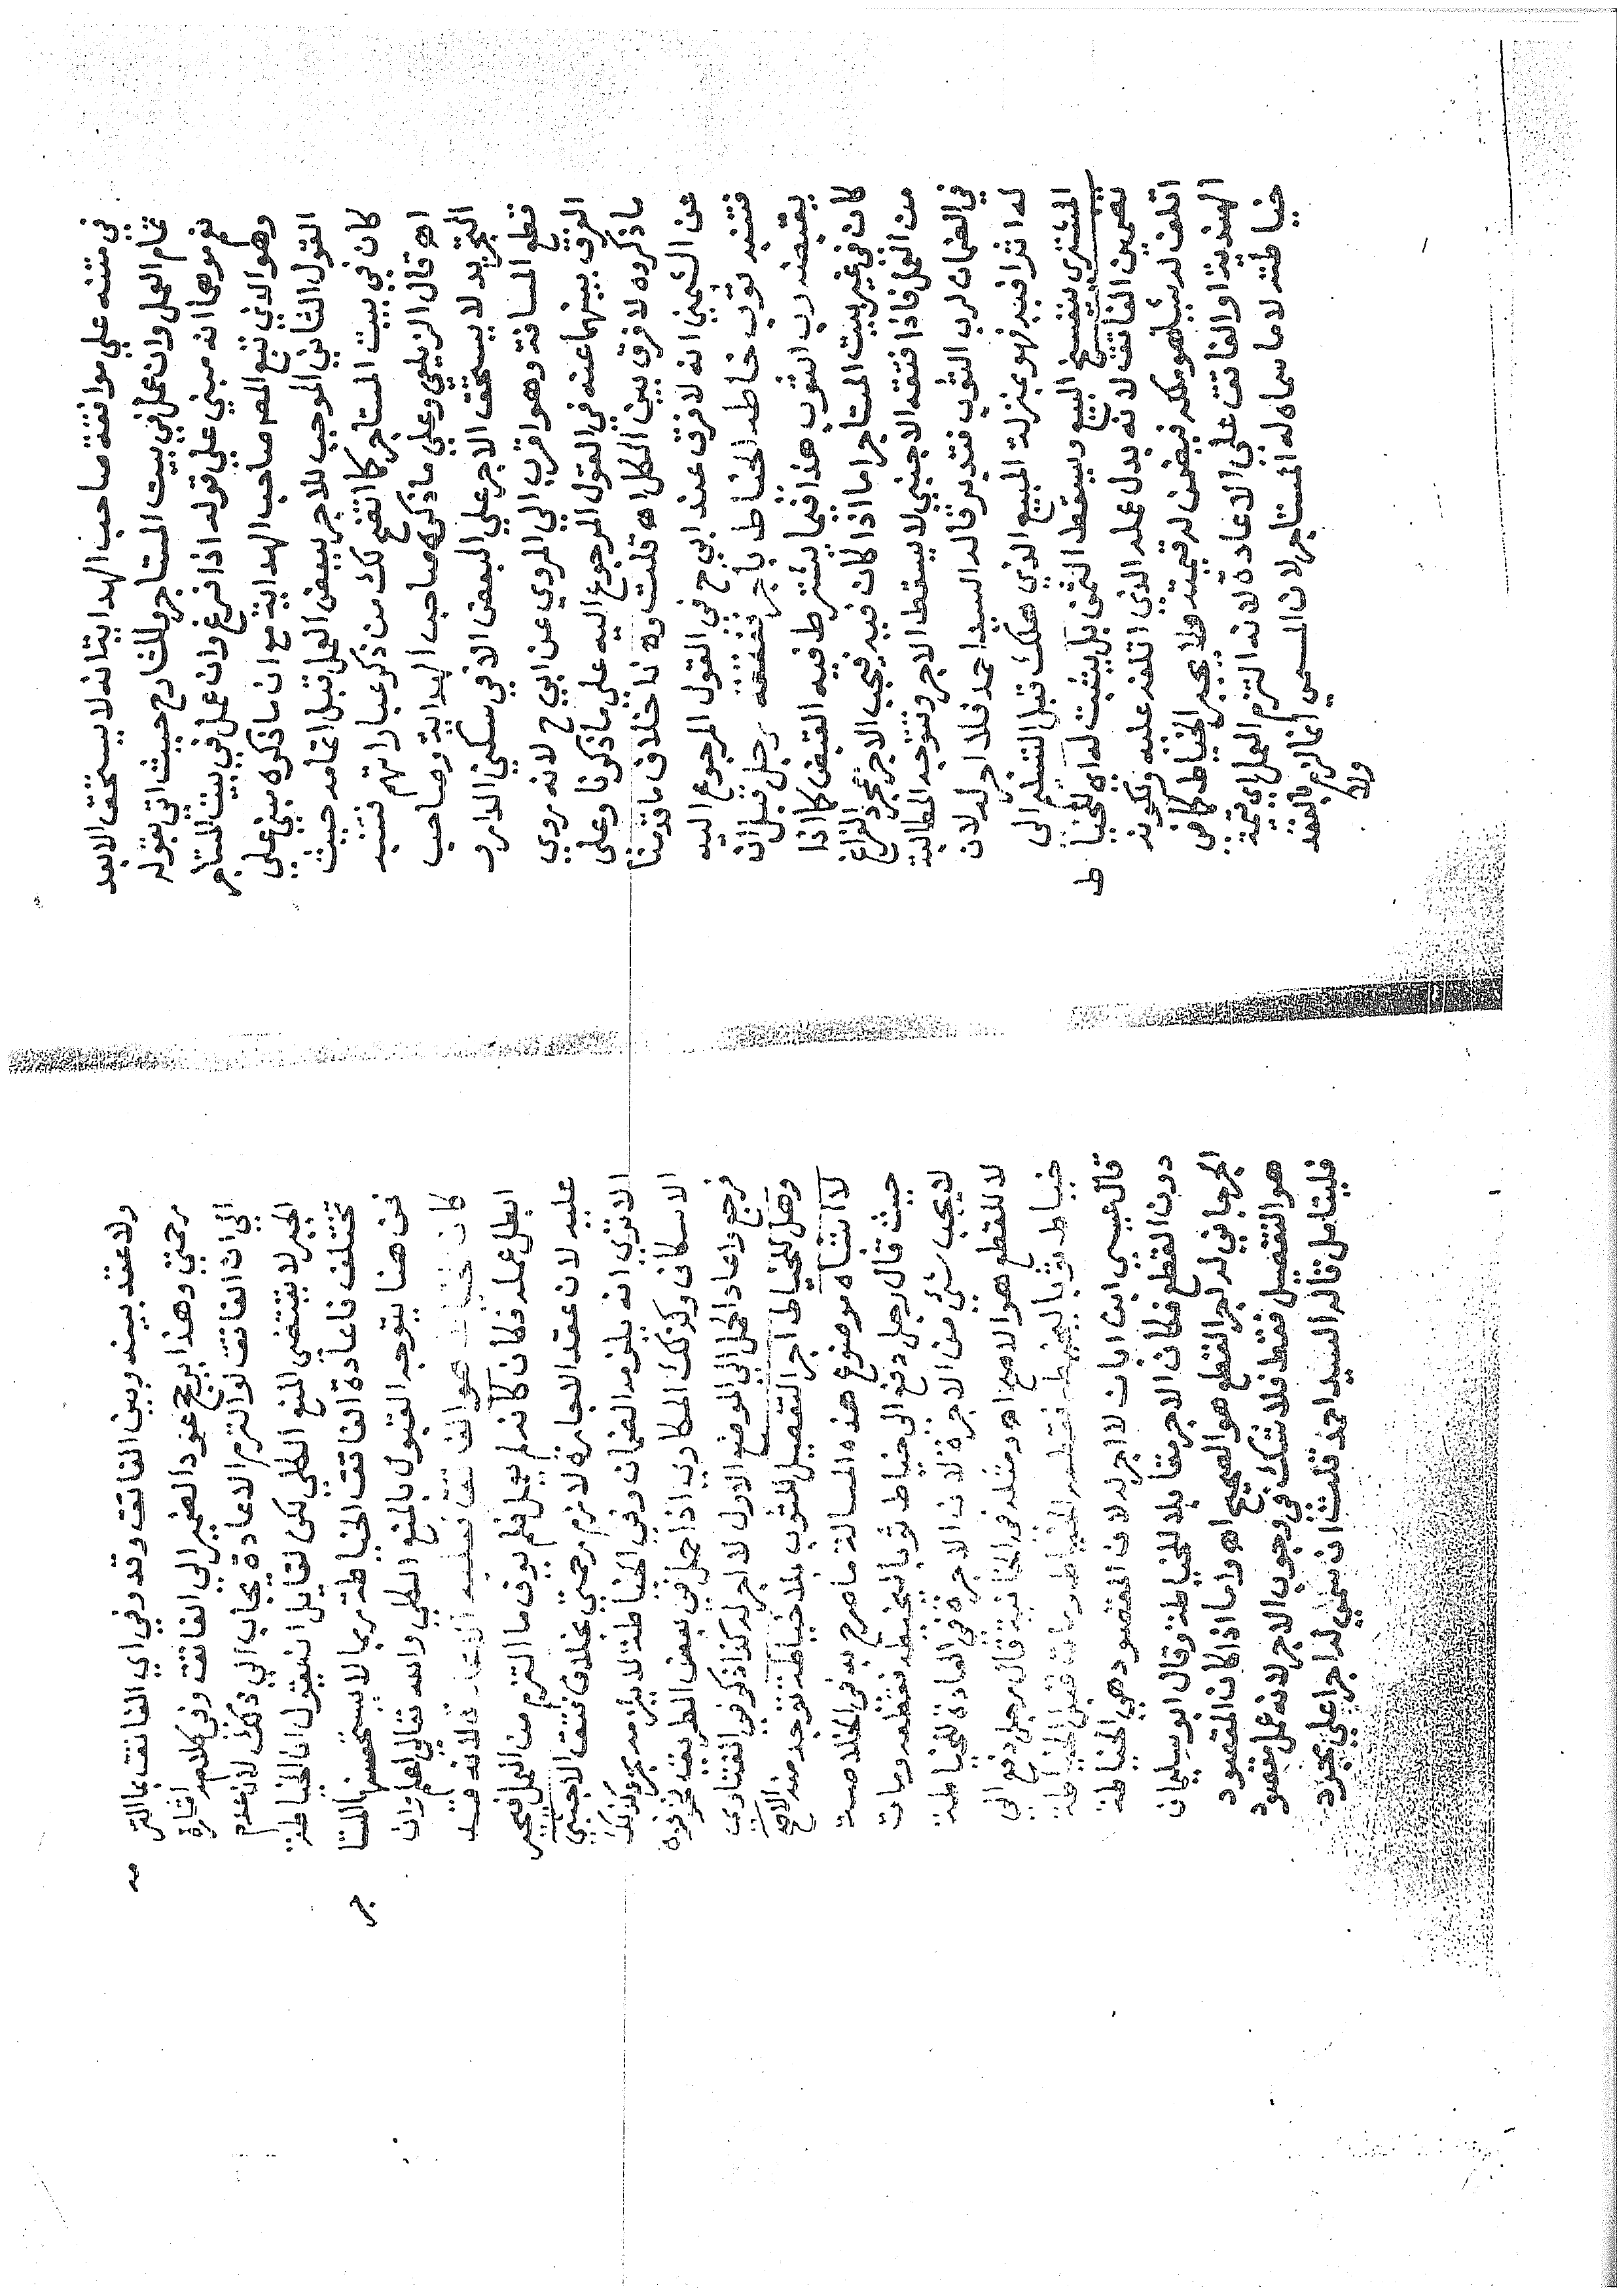 في متنه علي موافقة صاحب الهداية انه لا يستحق الا بعد
تمام العمل وان عمل في بيت المستاجر وللشارح حيث اتي بقوله
نعم موهما انه مبني علي قوله اذا فرغ وان عمل في بيت المستاجر
وهو الذي تبع المص صاحب الهداية مع ان ما ذكره مبني علي
القول الثاني الموجب للاجر ببعض العمل قبل اتمامه حيث
كان في بيت المستاجر كما اتضح لك من ذكر عباراتهم فتنبه
اه قال الزيلعي وعلي ما ذكره صاحب الهداية وصاحب
التجريد لا يستحق الاجر علي البعض الا في سكني الدار و
قطع المسافة وهو اقرب الي المروي عن ابي ح لانه روي
الفرق بينهما عنه في القول المرجوع اليه علي ما ذكرنا وعلي
ما ذكروه لا فرق بين الكل اه قلت وهنا خلاف ما قدمنا
عن الشمني انه لا فرق عند ابي ح في القول المرجوع اليه
فتنبه ثوب خاطه الخياط باجر ففتقه رجل قبل ان
يقبضه رب الثوب هذا فيما يشترط فيه القبض كما اذا
كان في غير بيت المستاجر اما اذا كان فيه فيجب الاجر بمجرد الفراغ
من العمل فاذا فتقه الاجنبي لا يسقط الاجر وتتوجه المطالبة
في الضمان لرب الثوب فتدبر قاله السيد احمد فلا اجر له لان
له اثرا فيه فهو بمنزلة المبيع الذي هلك قبل التسليم الى
المشتري ينفسخ البيع ويسقط الثمن بل يثبت له اي للخياط
تضمين الفاتق لانه بدل عمله الذي اتلفه عليه ولكونه
اتلف له شيئا هو ملكه فيضمن له قيمته ولا يجبر الخياط كما في
الهندية او الفاتق علي الاعادة لانه التزم العمل اي قيمة
خياطته لا ما سماه له المستاجر لان المسمي انما لزم بالعقد
ولا
ولا عقد بينه وبين الفاتق وقد وفي اي الفاتق بما التزمه
رحمتي وهذا يرجع عود الضمير الي الفاتق وفي كلامه اشارة
الي ان الفاتق لو التزم الاعادة يجاب الي ذلك لان عدم
الجبر لا يقتضي المنع الكلي لكن لقايل ان يقول ان الخياطة
تختلف فاعادة الفاتق الخياطة ربما لا يستحسنها المستاجر
فمن هنا يتوجه القبول بالمنع الكلي والله تعالي اعلم وان
كان الخياط هو الفاتق فعليه الاعادة لانه قد
ابطل عمله فكان كانه لم يعمل فلم يوف ما التزم من العمل فيجبر
عليه لان عقد الاجارة لازم رحمتي بخلاف فتق الاجنبي
الا تري انه يلزمه الضمان وفي الخياطة لا يلزمه بحر وكذلك
الاسكاف وكذلك المكاري اذا حمل في بعض الطريق فخوفوه
فرجع واعاد الحمل الي الموضع الاول لا اجر له كذا ذكر في الفتاوى
وهل للخياط اجر التفصيل للثوب بلا خياطة توجد منه الاصح
لا اشباه موضوع هذه المسالة ما صرح به في الخلاصة
حيث قال رجل دفع الى خياط ثوبا ليخيطه فقطعه ومات
لا يجب شئ من الاجرة لان الاجرة في العادة للخياطة
لا للقطع هو الاصح اه ومثله في الخانية قال رجل دفع الي
خياط ثوبا ليخيطه فقطعه الخياط ومات قبل الخياطة
قال عيسي ابن ابان لا اجر له لان المقصود هي الخياطة
دون القطع فكان الاجر مقابلا للخياطة وقال ابو سليمان
الجوزجاني له اجر القطع هو الصحيح اه واما اذا كان المقصود
هو التفصيل فقط فلا شك في وجوب الاجر لانه عمل مقصود
فليتامل قاله السيد احمد قلت ان سمي له اجرا علي مجرد